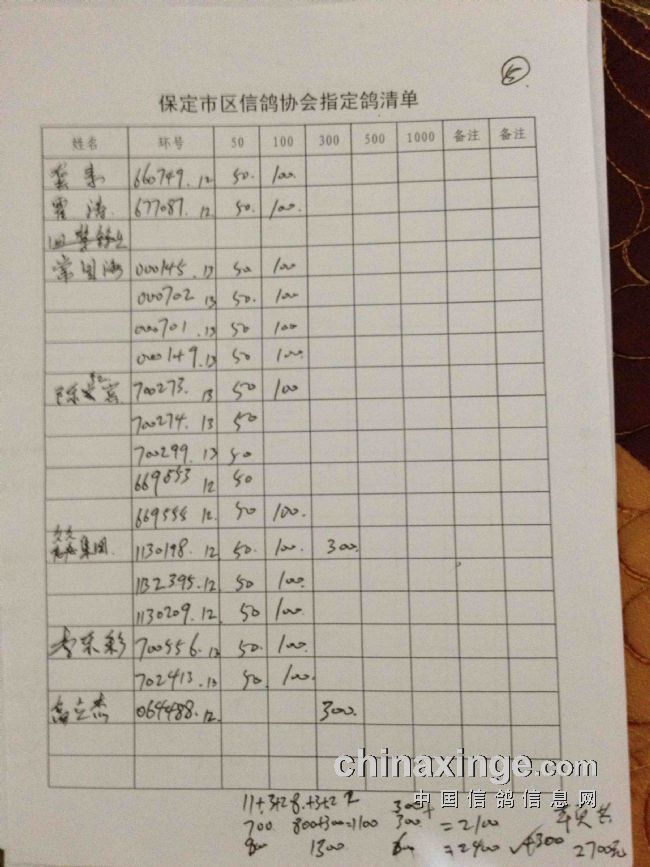 5
保定市区信鸽协会指定鸽清单
姓名 环号 50 100 300 500 1000 备注 备注
660749.12 50. 100.
霍涛 677087.12 50. 100.
常国海 000145.13 50 100
000702 13 50. 100
000701.13 50 100
000149.13 50 100.
陈 宾 700273. 13 50 100
700274.13 50
700299.13 50
669553 12 50
669555 12. 50 100.
集团. 1130198.12 50. 100. 300.
1132395.12 50 100.
1130209.12. 50 100.
李东彩 700556.13 50. 100.
702413.13 50. 100.
高立杰 064488.12. 300.
chinaxinge.com
中国信鸽信息网
700 800+300=1100 300 =2100
1300 =2400 4300 2700元